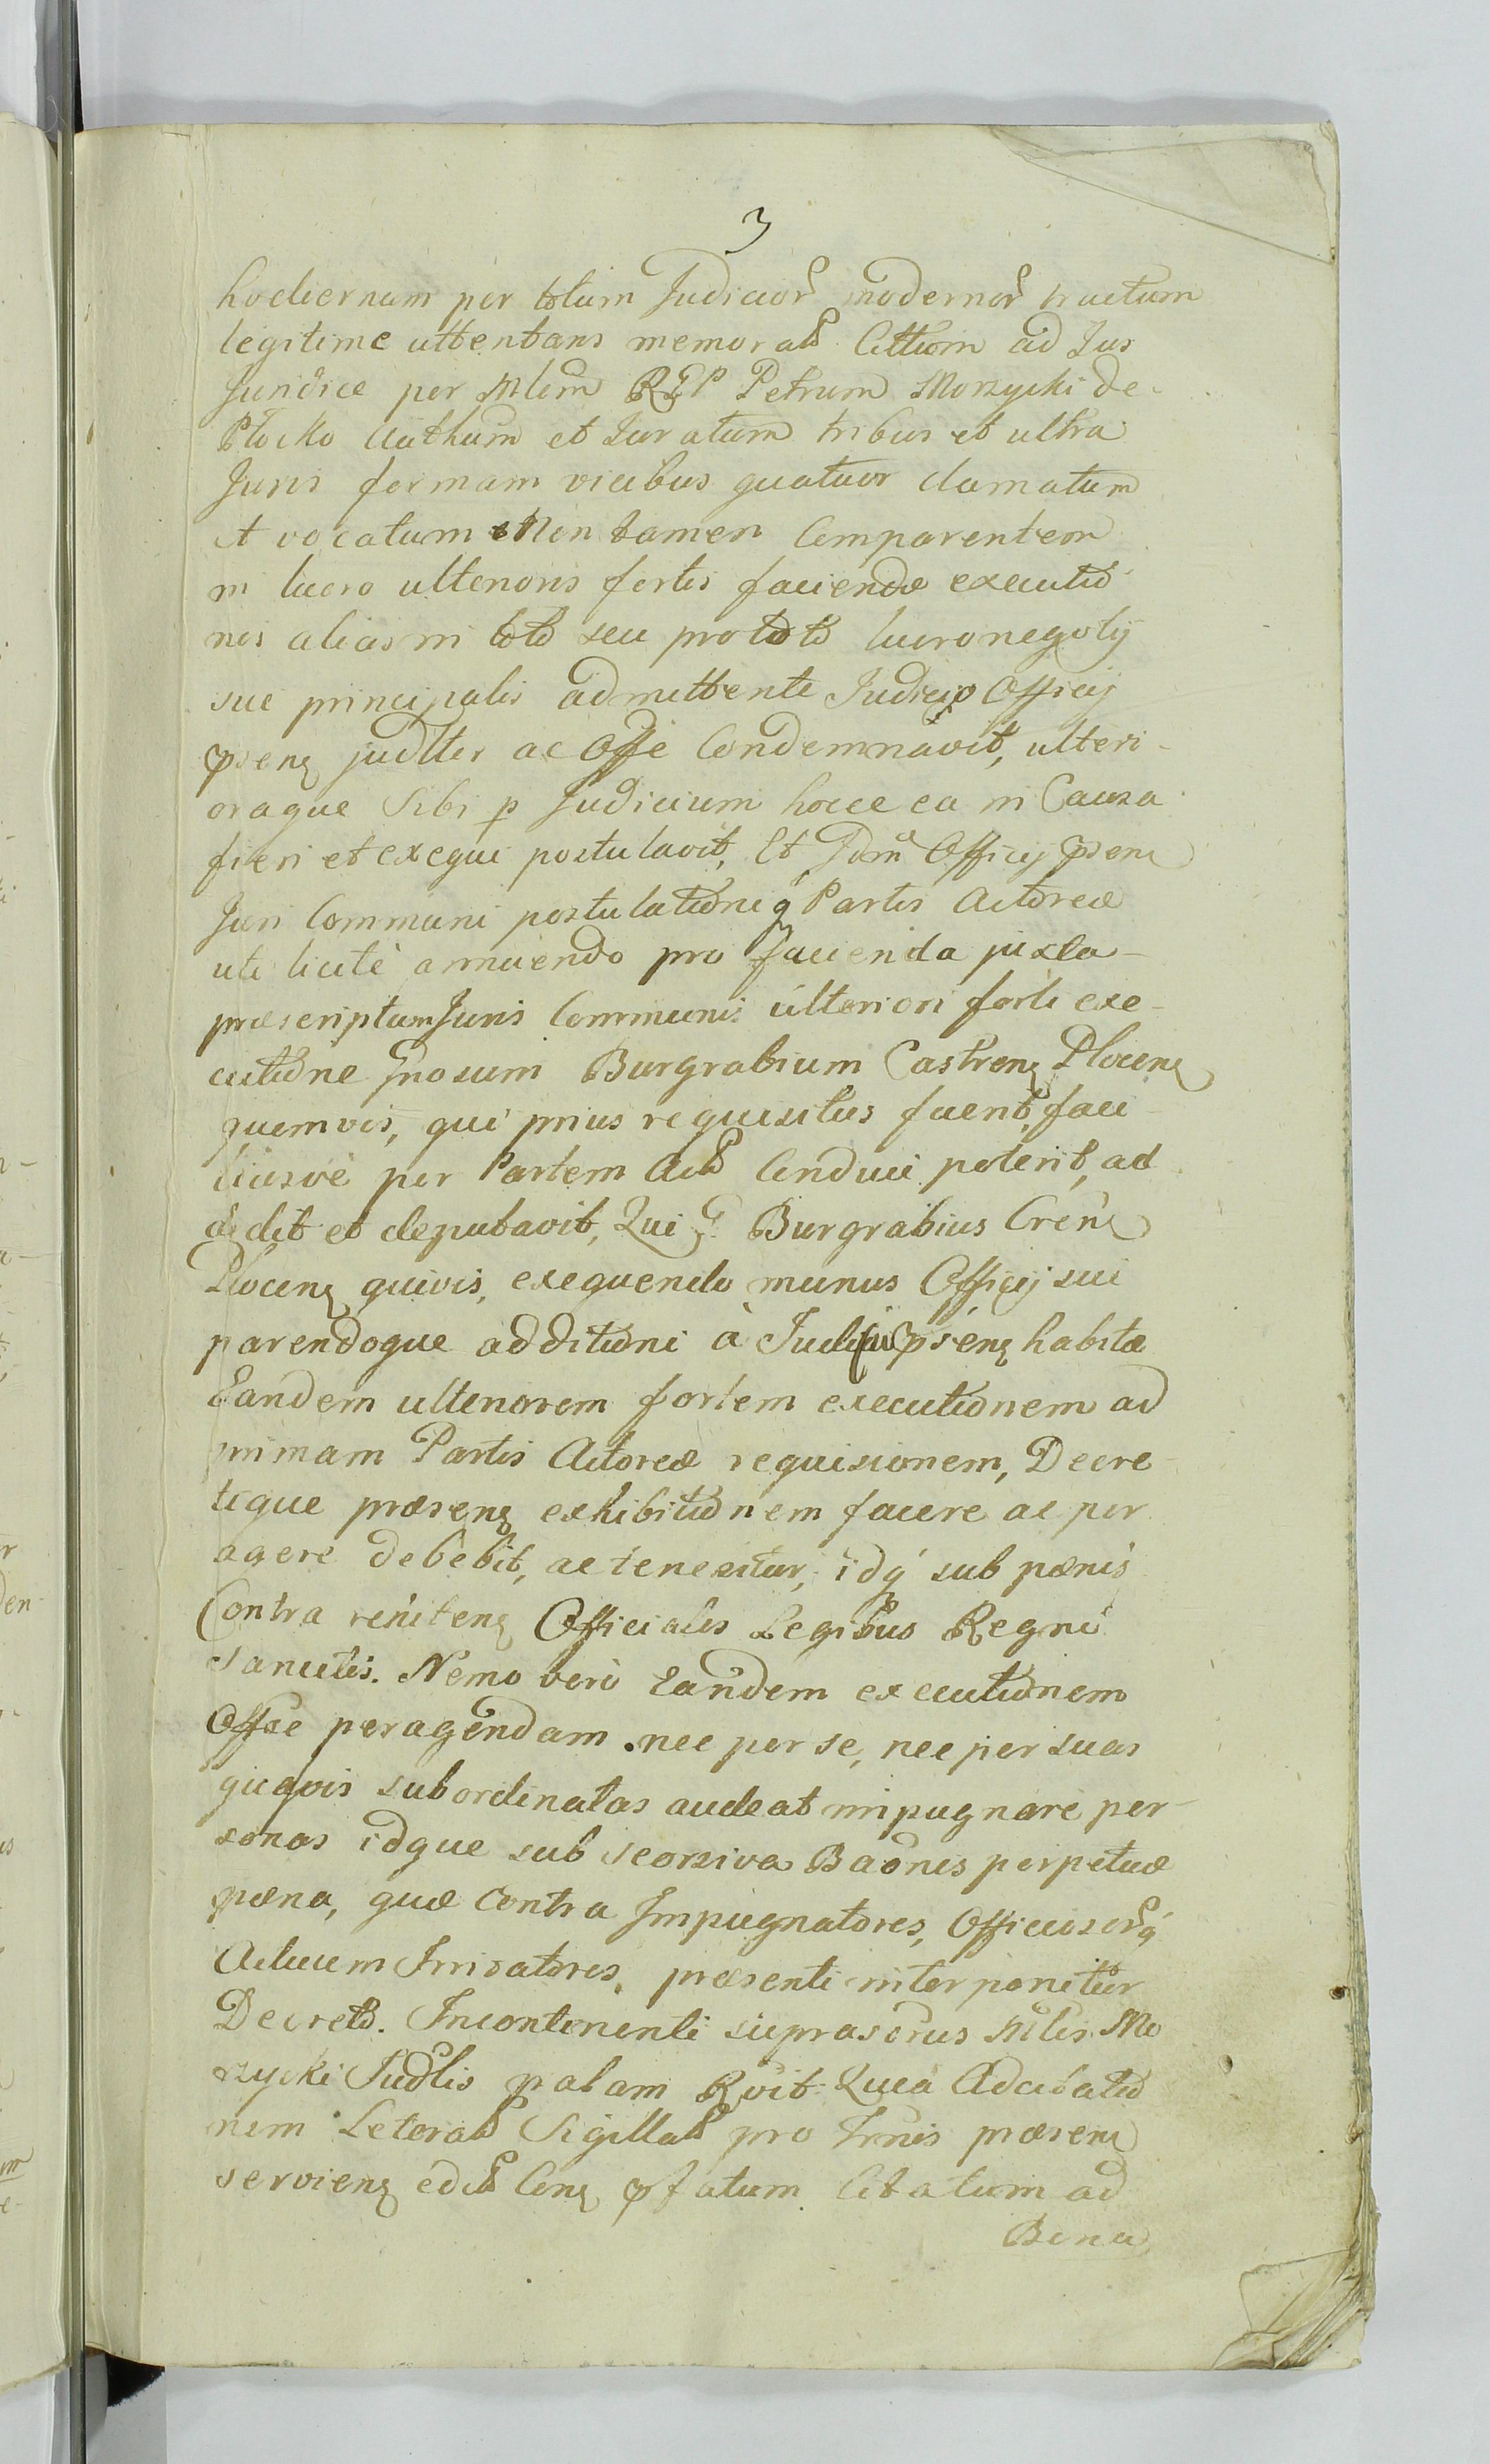 3
hodiernam per totum Judicior modernor tractum
legitime attentans memorat Cittum ad Jus
Juridice per Mlem RGP Petrum Morzycki de
Płocko authum et Juratum tribus et ultra
Juris formam vicibus quatuor clamatum
et vocatum Non tamen Comparentem
in lucro ulterioris fortis faciendæ executio
nis alias in toto seu pro toto lucro negotij
sui principalis admittente Judicio Officij
psens judlter ac Offe Condemnavit, ulteri-
oraque Sibi p Judicium hocce ea in Causa
fieri et exequi postulavit, Et Jdm Officij psens
Juri Communi postulationiq Partis Actoreæ
uti licitè annuendo pro facienda juxta
præscriptum Juris Communis ulteriori forti exe-
cutione Gnosum Burgrabium Castrens Plocens
quemvis, qui prius requisitus fuerit, faci
liusvè per Partem Act Conduci poterit, ad
didit et deputavit, Qui G Burgrabius Crens
Plocens quivis, exequendo munus Officij sui
parendoque additioni à Judicio psens habitæ
Eandem ulteriorem fortem executionem ad
primam Partis Actoreæ requisionem, Decre
tique præsens exhibitionem facere ac per
agere debebit, ac tenebitur, idq sub pænis
Contra renitens Officiales Legibus Regni
sancitis. Nemo verò Eandem executionem
Offse peragendam nec per se, nec per suas
quasvis subordinatas audeat impugnare per-
sonas idque sub seorsiva Baonis perpetuæ
pæna, quæ Contra Impugnatores, Officiosorq
Actuum Irrisatores, præsenti interponitur
Decreto. Incontenenti suprascrus Mlis Mo
rzycki Judlis palam Rvit Quia Adcitatio
nem Leterat Sigillat pro Trnis præsens
serviens edit Cens pfatum Citatum ad
Bona